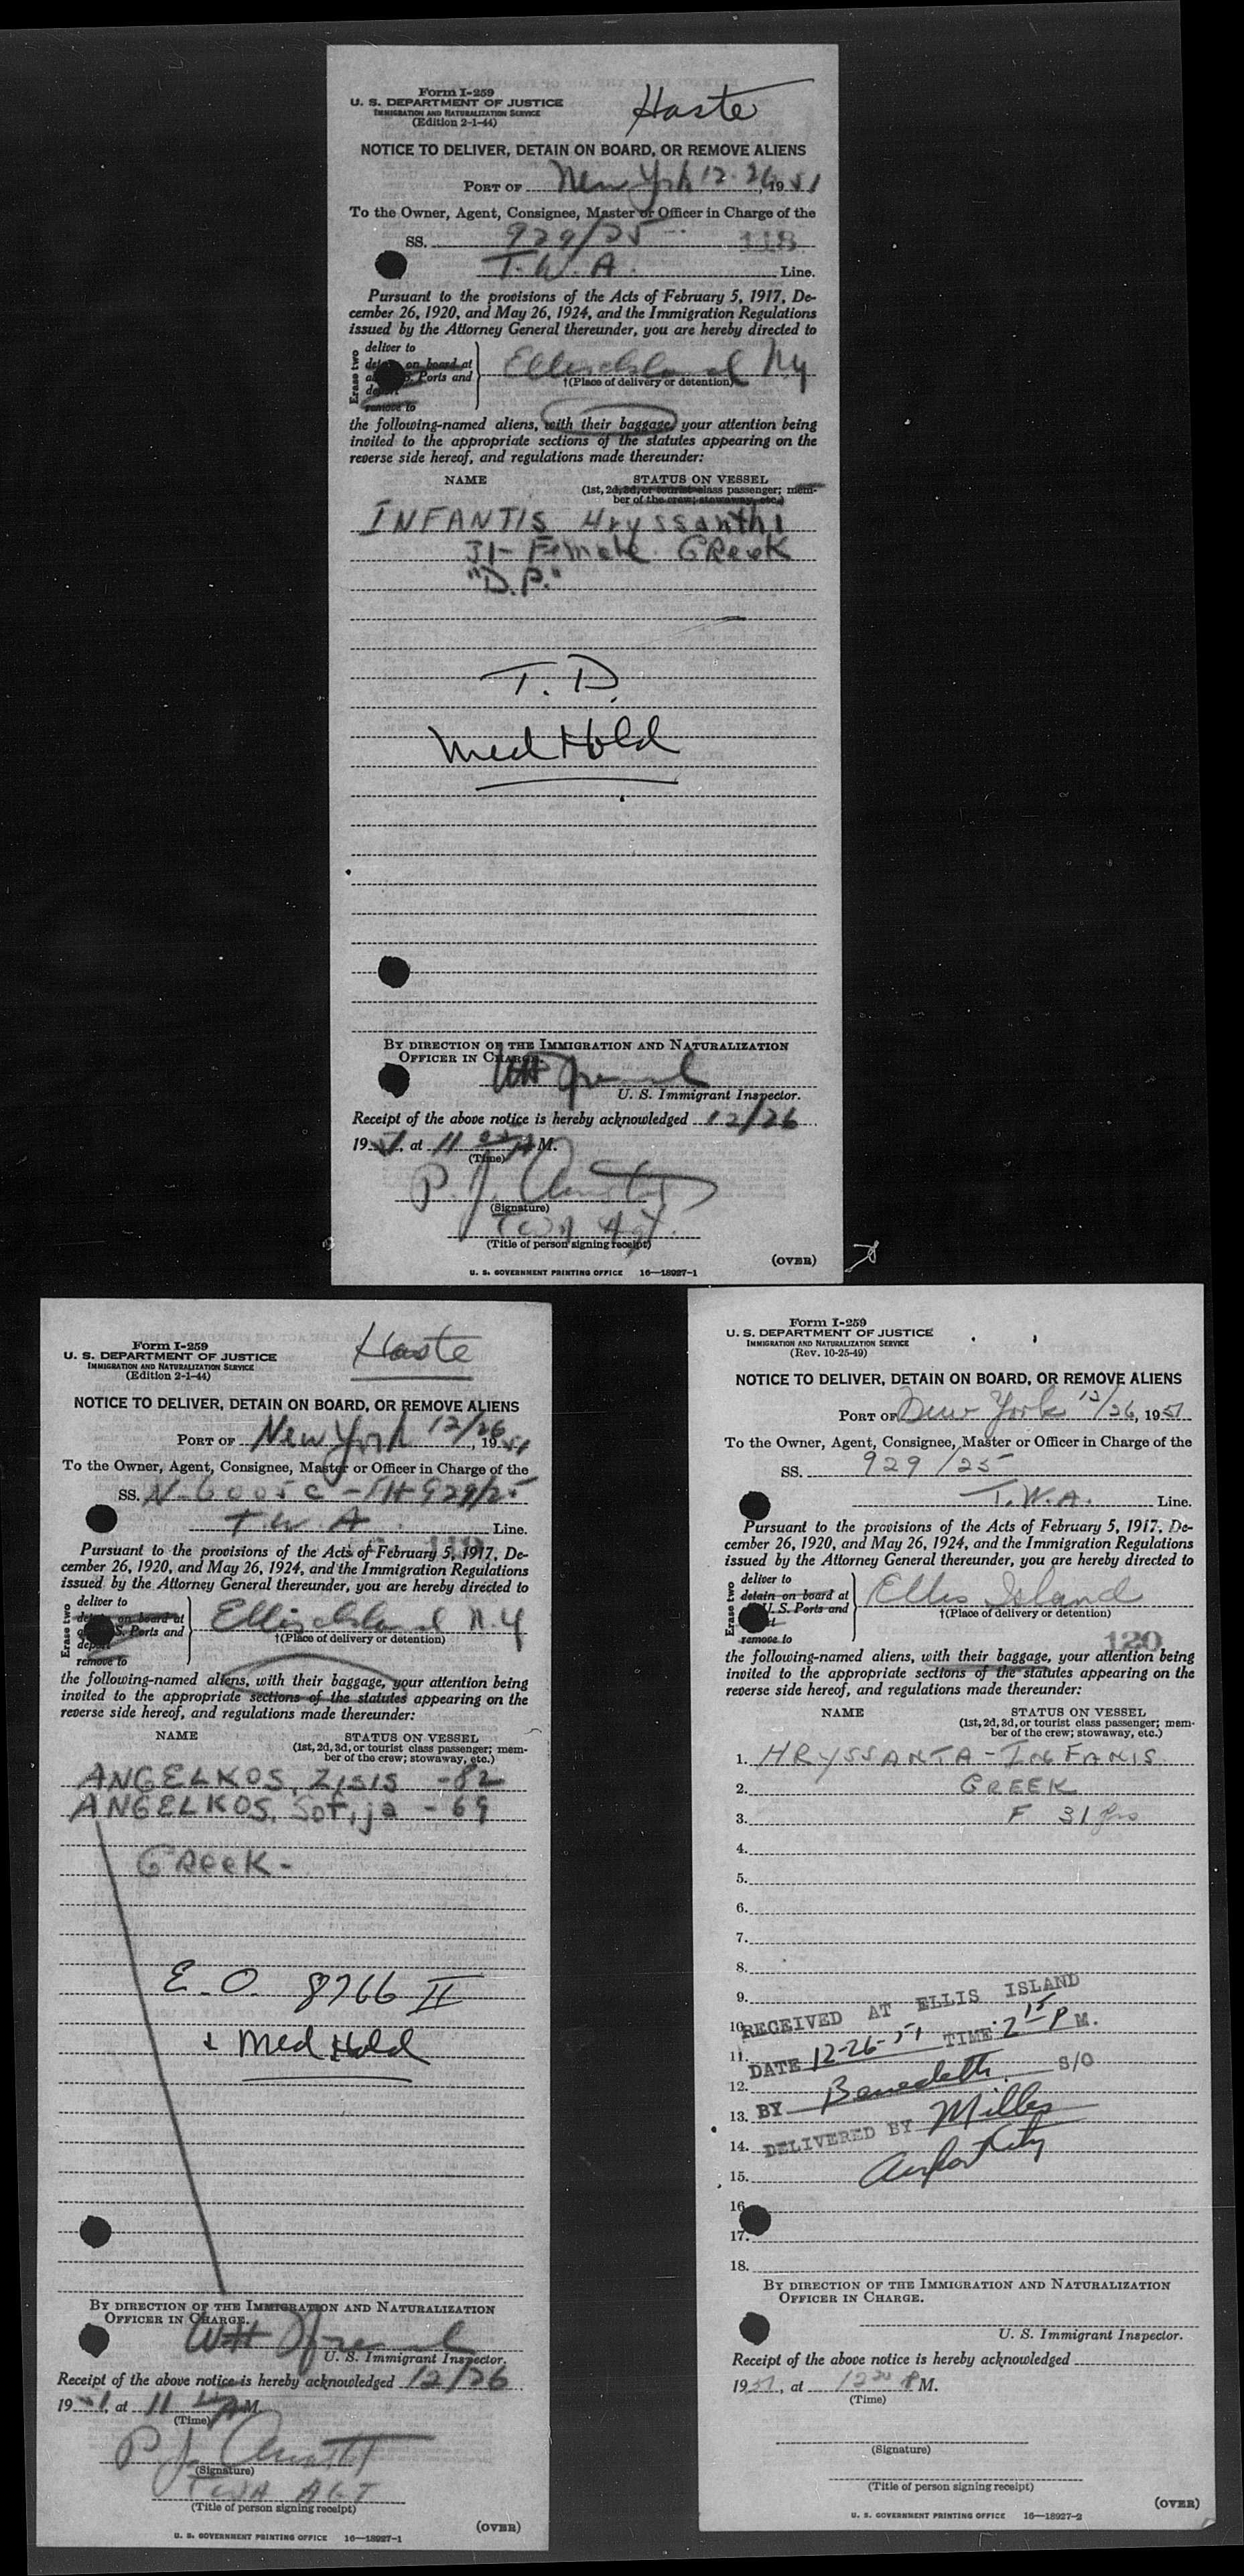 Form I-259
U. S. DEPARTMENT OF JUSTICE
IMMIGRATION AND NATURALIZATION SERVICE
(Edition 2-1-44)
Haste
NOTICE TO DELIVER, DETAIN ON BOARD, OR REMOVE ALIENS
PORT OF New York 12-26, 1951
To the Owner, Agent, Consignee, Master or Officer in Charge of the
SS. 929/25 118
T. W. A. Line.
Pursuant to the provisions of the Acts of February 5, 1917, De-
cember 26, 1920, and May 26, 1924, and the Immigration Regulations
issued by the Attorney General thereunder, you are hereby directed to
Erase two
deliver to
on board at
Ports and
remove to
Ellis Island N.Y
†(Place of delivery or detention)
the following-named aliens, with their baggage, your attention being
invited to the appropriate sections of the statutes appearing on the
reverse side hereof, and regulations made thereunder:
NAME STATUS ON VESSEL
(1st, 2d, 3d, or tourist class passenger; mem-
ber of the crew; stowaway, etc.)
INFANTIS Hryssanthi
31- Female GReek
"D.P."
T. D.
Med Hold
BY DIRECTION OF THE IMMIGRATION AND NATURALIZATION
OFFICER IN CHARGE.
U. S. Immigrant Inspector.
Receipt of the above notice is hereby acknowledged 12/26
1951, at 11 M.
(Time)
P. J.
(Signature)
TWA Agt.
(Title of person signing receipt)
(OVER)
U. S. GOVERNMENT PRINTING OFFICE 16—18927-1
Form I-259
U. S. DEPARTMENT OF JUSTICE
IMMIGRATION AND NATURALIZATION SERVICE
(Edition 2-1-44)
Haste
NOTICE TO DELIVER, DETAIN ON BOARD, OR REMOVE ALIENS
PORT OF New York 12/26, 1951
To the Owner, Agent, Consignee, Master or Officer in Charge of the
SS. N-6005C - FH 929/25
T. W. A. Line.
Pursuant to the provisions of the Acts of February 5, 1917, De-
cember 26, 1920, and May 26, 1924, and the Immigration Regulations
issued by the Attorney General thereunder, you are hereby directed to
Erase two
deliver to
detain on board at
S. Ports and
remove to
Ellis Island N.Y
†(Place of delivery or detention)
the following-named aliens, with their baggage, your attention being
invited to the appropriate sections of the statutes appearing on the
reverse side hereof, and regulations made thereunder:
NAME STATUS ON VESSEL
(1st, 2d, 3d, or tourist class passenger; mem-
ber of the crew; stowaway, etc.)
ANGELKOS, Zisis - 82
ANGELKOS, Sotija - 69
GReeK-
E. O. 8766 II
+ Med Hold
BY DIRECTION OF THE IMMIGRATION AND NATURALIZATION
OFFICER IN CHARGE.
U. S. Immigrant Inspector.
Receipt of the above notice is hereby acknowledged 12/26
1951, at 11 M.
(Time)
P. J.
(Signature)
TWA AGT
(Title of person signing receipt)
(OVER)
U. S. GOVERNMENT PRINTING OFFICE 16—18927-1
Form I-259
U. S. DEPARTMENT OF JUSTICE
IMMIGRATION AND NATURALIZATION SERVICE
(Rev. 10-25-49)
NOTICE TO DELIVER, DETAIN ON BOARD, OR REMOVE ALIENS
PORT OF New York 12/26, 1951
To the Owner, Agent, Consignee, Master or Officer in Charge of the
SS. 929/25
T.W.A. Line.
Pursuant to the provisions of the Acts of February 5, 1917, De-
cember 26, 1920, and May 26, 1924, and the Immigration Regulations
issued by the Attorney General thereunder, you are hereby directed to
Erase two
deliver to
detain on board at
U. S. Ports and
remove to
Ellis Island
†(Place of delivery or detention)
120
the following-named aliens, with their baggage, your attention being
invited to the appropriate sections of the statutes appearing on the
reverse side hereof, and regulations made thereunder:
NAME STATUS ON VESSEL
(1st, 2d, 3d, or tourist class passenger; mem-
ber of the crew; stowaway, etc.)
1. HRYSSANTA - INFANIS
2. GREEK
3. F 31 yrs
4.
5.
6.
7.
8.
9.
10. RECEIVED AT ELLIS ISLAND
11. DATE 12-26-51 TIME 2 15 P M.
12.
13. BY Benedetti S/O
14. DELIVERED BY Miller
15.
16.
17.
18.
BY DIRECTION OF THE IMMIGRATION AND NATURALIZATION
OFFICER IN CHARGE.
U. S. Immigrant Inspector.
Receipt of the above notice is hereby acknowledged
1951, at 12 30 P M.
(Time)
(Signature)
(Title of person signing receipt)
(OVER)
U. S. GOVERNMENT PRINTING OFFICE 16—18927-2